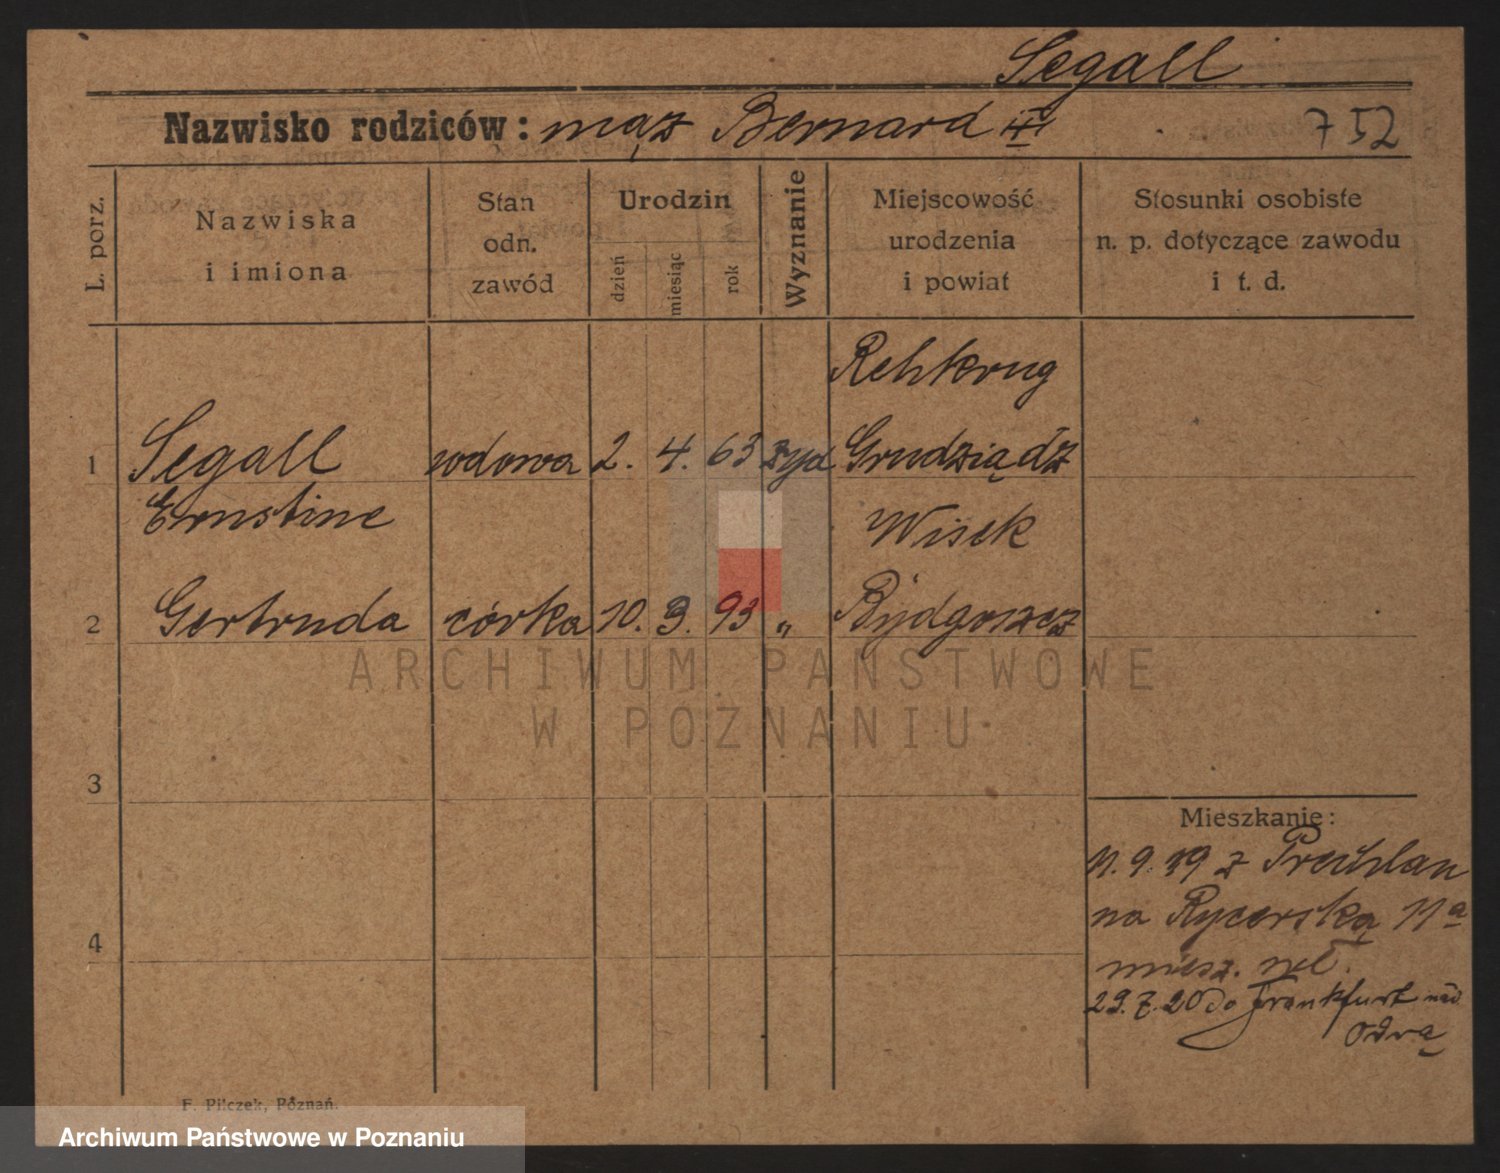 Segall
Nazwisko rodziców: mąż Bernard
752
L. porz.
Nazwiska
i imiona
Stan
odn.
zawód
Urodzin
dzień
miesiąc
rok
Wyznanie
Miejscowość
urodzenia
i powiat
Stosunki osobiste
n. p. dotyczące zawodu
i t. d.
Rehkrug
1 Segall wdowa 2. 4. 63 żyd Grudziądz
Ernstine
Wisek
2 Gertruda córka 10. 3. 93 „ Bydgoszcz
ARCHIWUM PAŃSTWOWE
W POZNANIU
3
Mieszkanie:
11. 9. 19 z Prechlau
na Rycerską 11a
4
miesz. wł.
29. 7. 20 do Frankfurt nad
Odrą
F. Pilczek, Poznań.
Archiwum Państwowe w Poznaniu